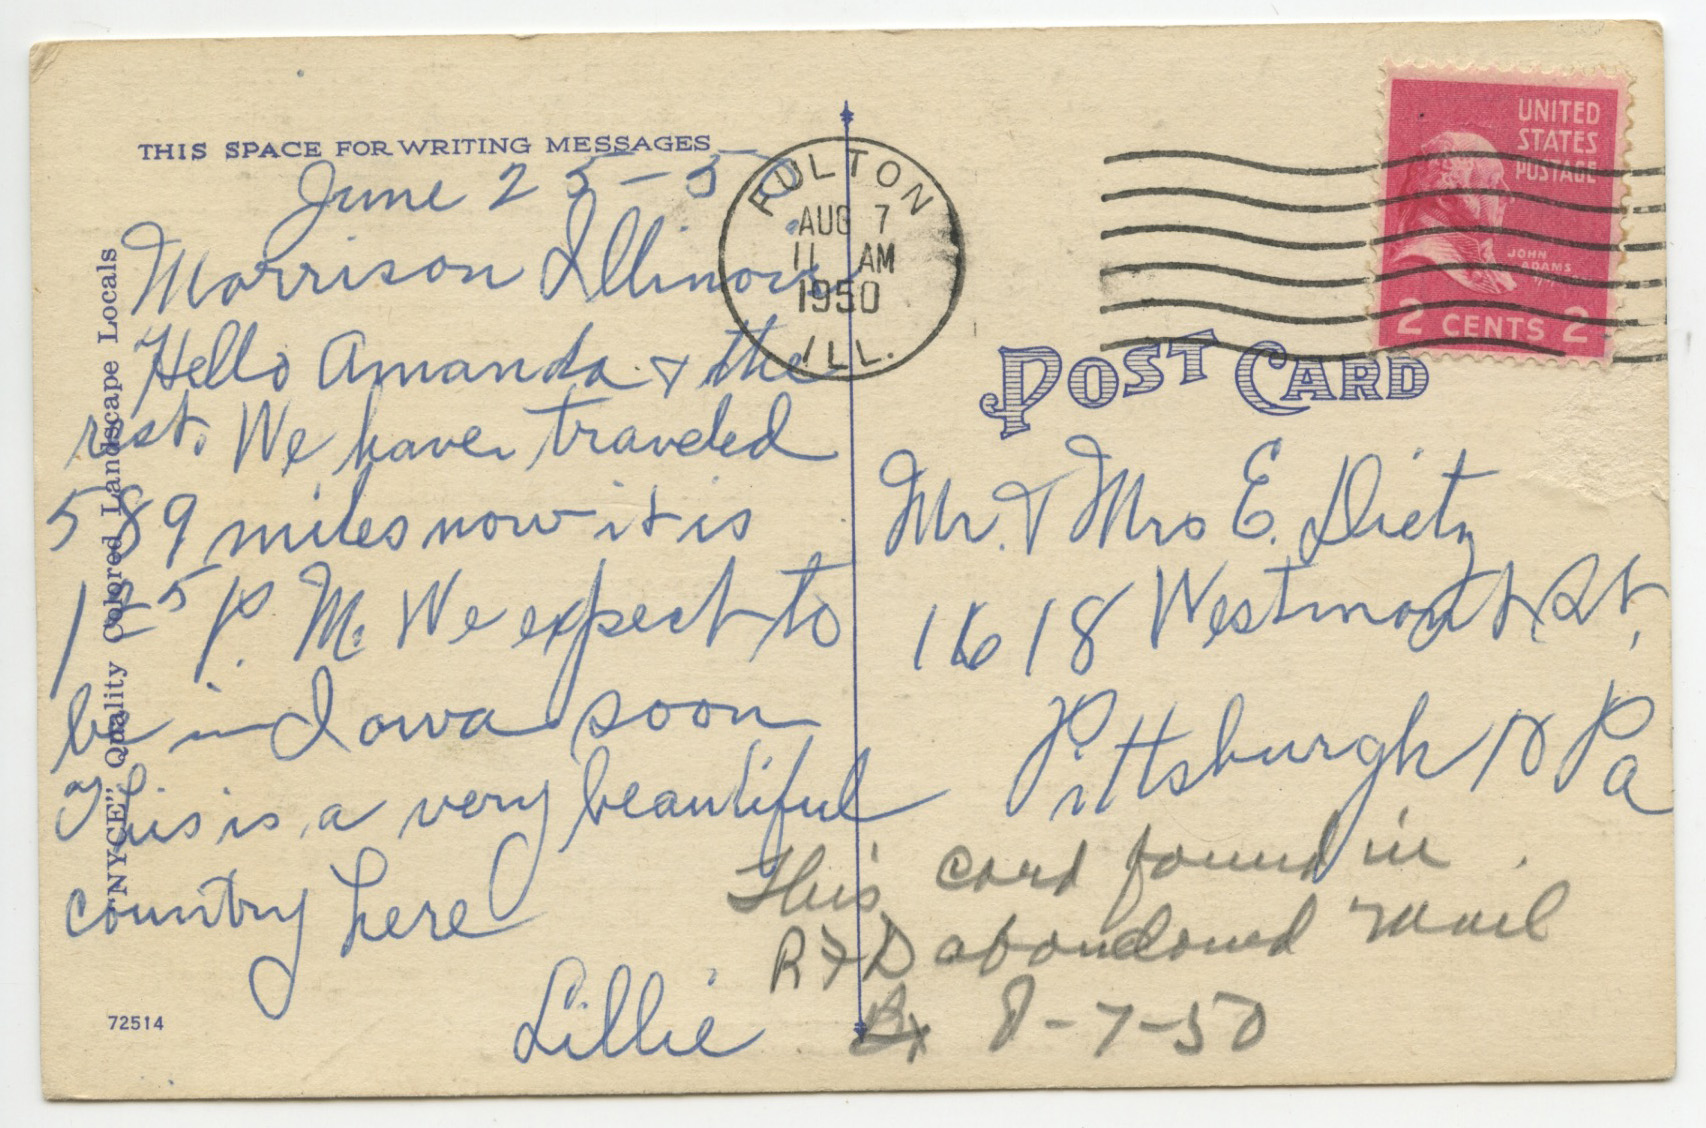 THIS SPACE FOR WRITING MESSAGES
June 25-50
Morrison Illinois
Hello Amanda & the
rest. We have traveled
589 miles now it is
125 P. M. We expect to
be in Iowa soon
This is a very beautiful
country here
Lillie
72514
"NYCE" Quality Colored Landscape Locals
FULTON
AUG 7
11 AM
1950
ILL.
UNITED
STATES
POSTAGE
JOHN
ADAMS
2 CENTS 2
POST CARD
Mr. & Mrs E. Dietz
1618 Westmont St.
Pittsburgh 10 Pa
This card found in
RFD abandoned mail
Bx 8-7-50